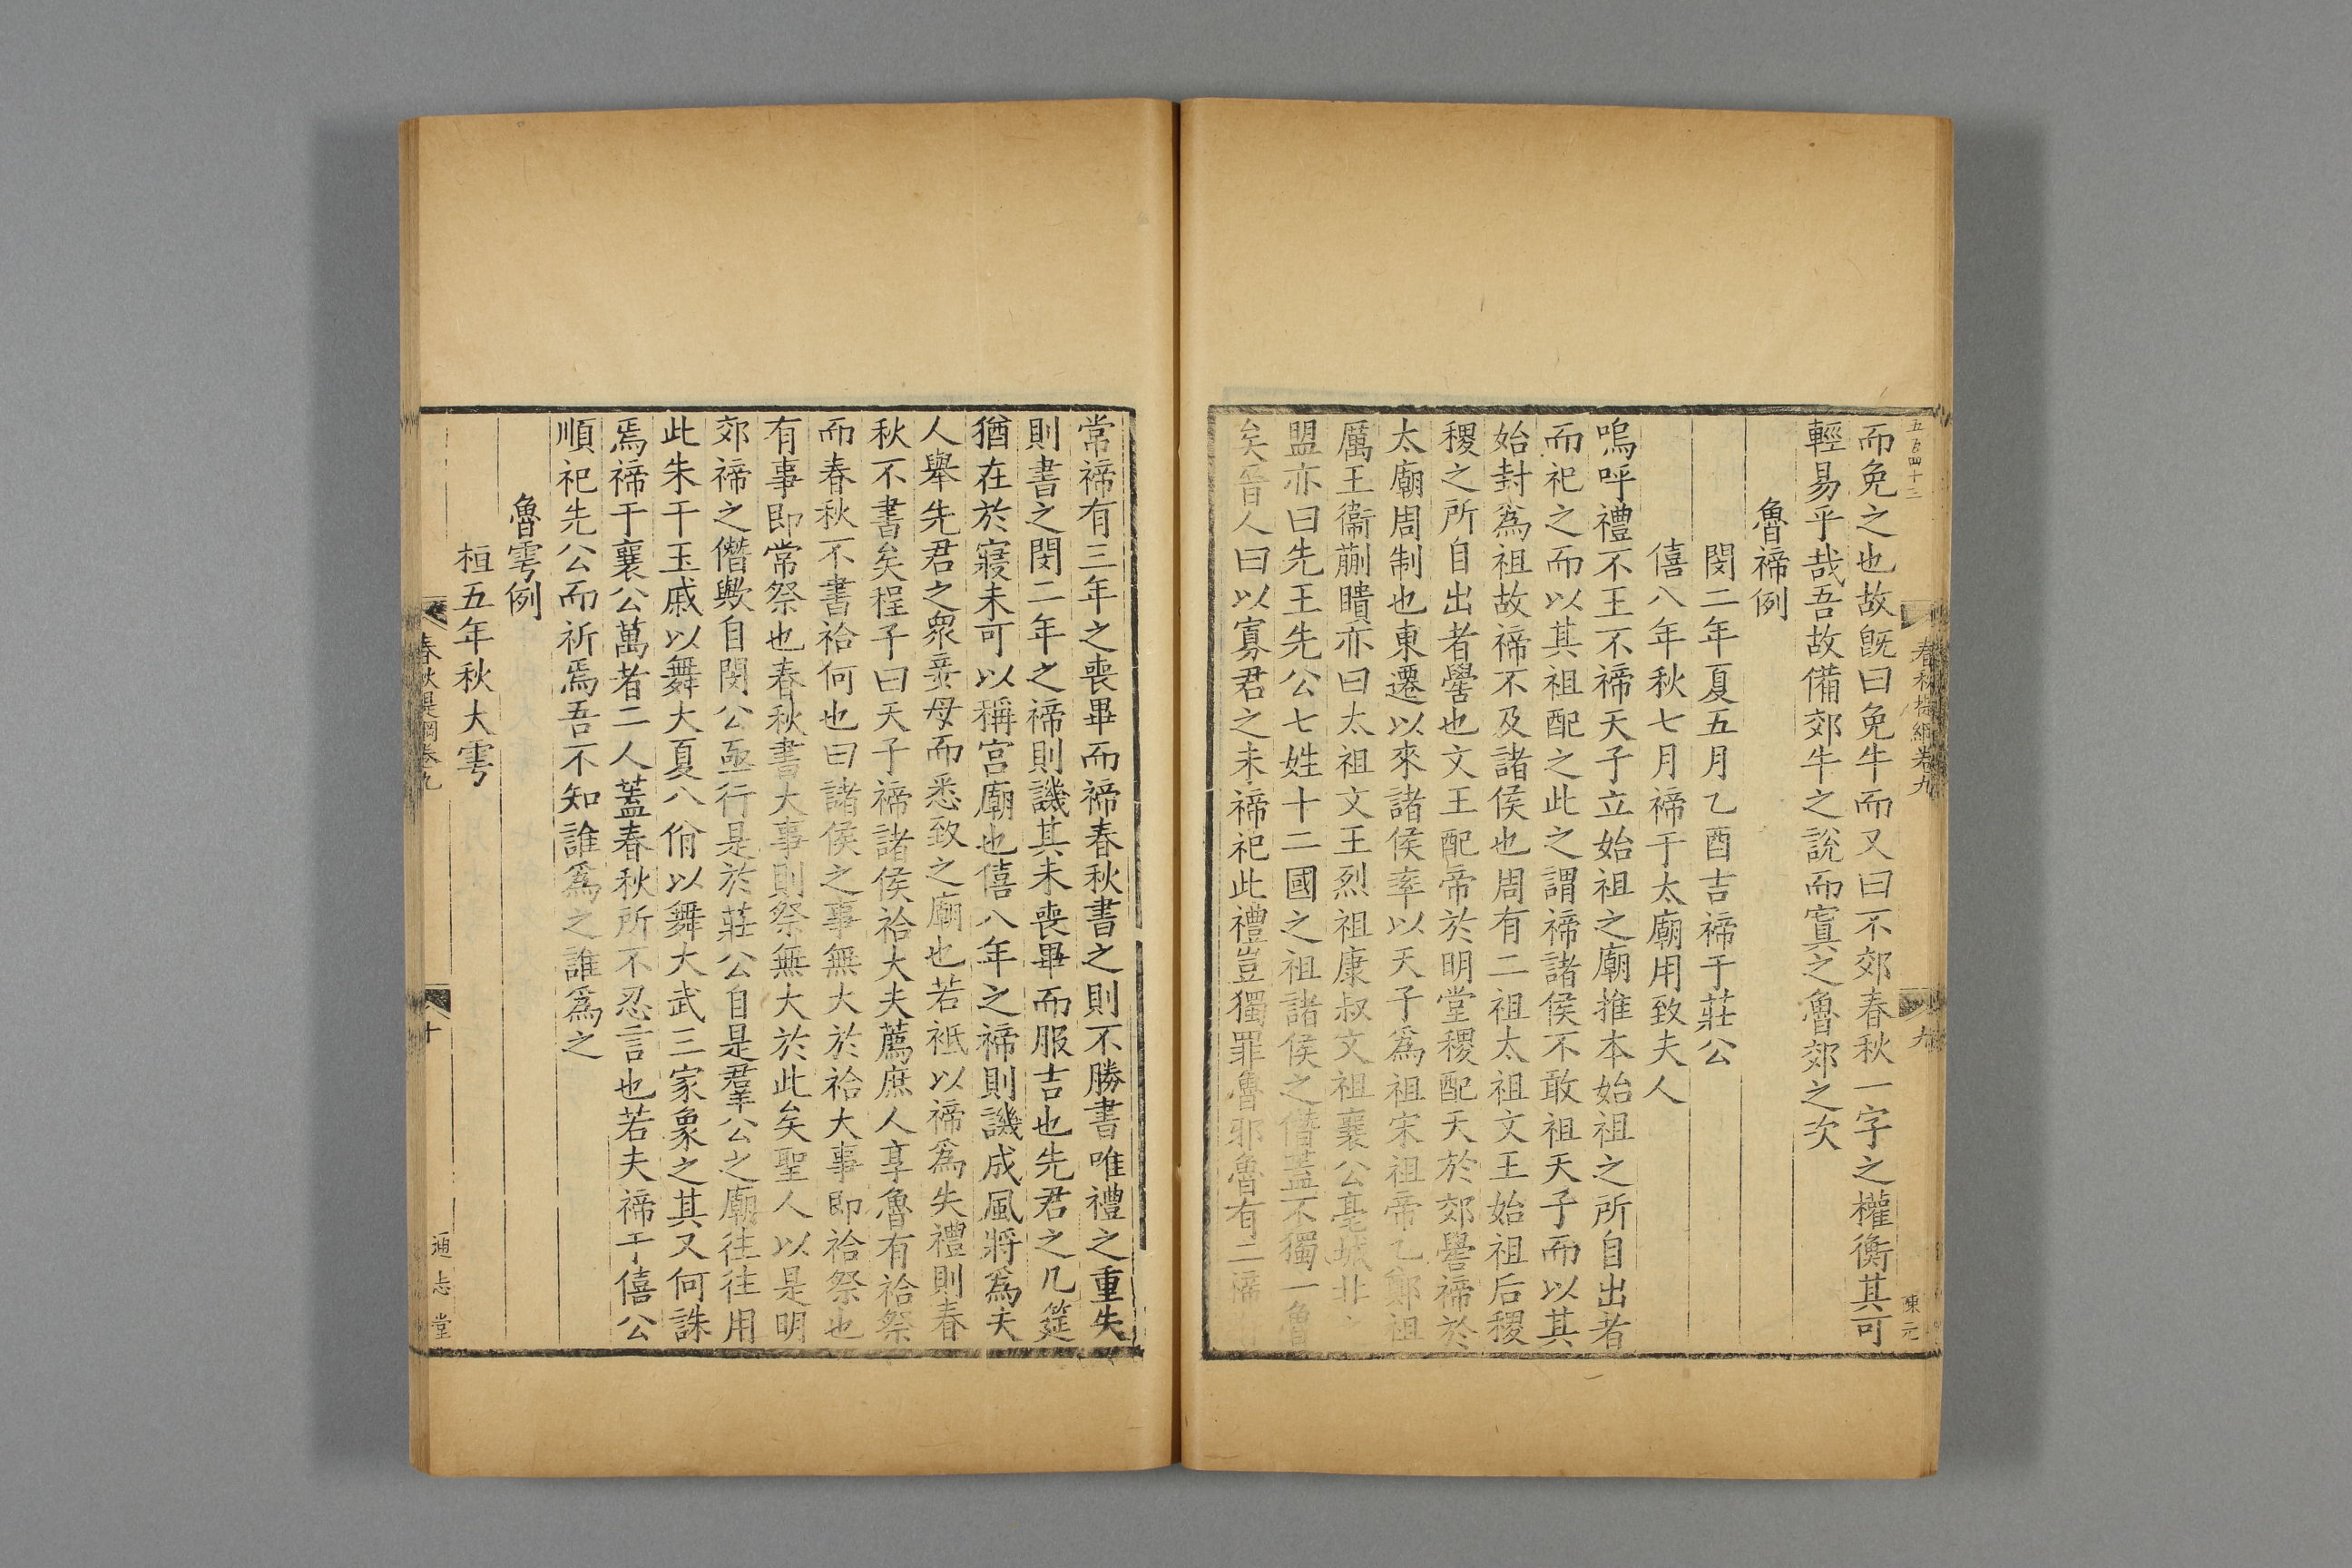 五百四十三
春秋提綱卷九
九
陳元
而免之也故旣曰免牛而又曰不郊春秋一字之權衡其可
輕易乎哉吾故備郊牛之說而寘之魯郊之次
魯禘例
閔二年夏五月乙酉吉禘于莊公
僖八年秋七月禘于太廟用致夫人
嗚呼禮不王不禘天子立始祖之廟推本始祖之所自出者
而祀之而以其祖配之此之謂禘諸侯不敢祖天子而以其
始封爲祖故禘不及諸侯也周有二祖太祖文王始祖后稷
稷之所自出者嚳也文王配帝於明堂稷配天於郊嚳禘於
太廟周制也東遷以來諸侯率以天子爲祖宋祖帝乙鄭祖
厲王衞蒯聵亦曰太祖文王烈祖康叔文祖襄公亳城北之
盟亦曰先王先公七姓十二國之祖諸侯之僭蓋不獨一魯
矣晉人曰以寡君之未禘祀此禮豈獨罪魯邪魯有二禘
常禘有三年之喪畢而禘春秋書之則不勝書唯禮之重失
則書之閔二年之禘則譏其未喪畢而服吉也先君之几筵
猶在於寢未可以稱宮廟也僖八年之禘則譏成風將爲夫
人舉先君之衆妾母而悉致之廟也若袛以禘爲失禮則春
秋不書矣程子曰天子禘諸侯祫大夫薦庶人享魯有祫祭
而春秋不書祫何也曰諸侯之事無大於祫大事即祫祭也
有事即常祭也春秋書大事則祭無大於此矣聖人以是明
郊禘之僭歟自閔公亟行是於莊公自是羣公之廟往往用
此朱干玉戚以舞大夏八佾以舞大武三家象之其又何誅
焉禘于襄公萬者二人蓋春秋所不忍言也若夫禘于僖公
順祀先公而祈焉吾不知誰爲之誰爲之
魯雩例
桓五年秋大雩
春秋提綱卷九
十
通志堂